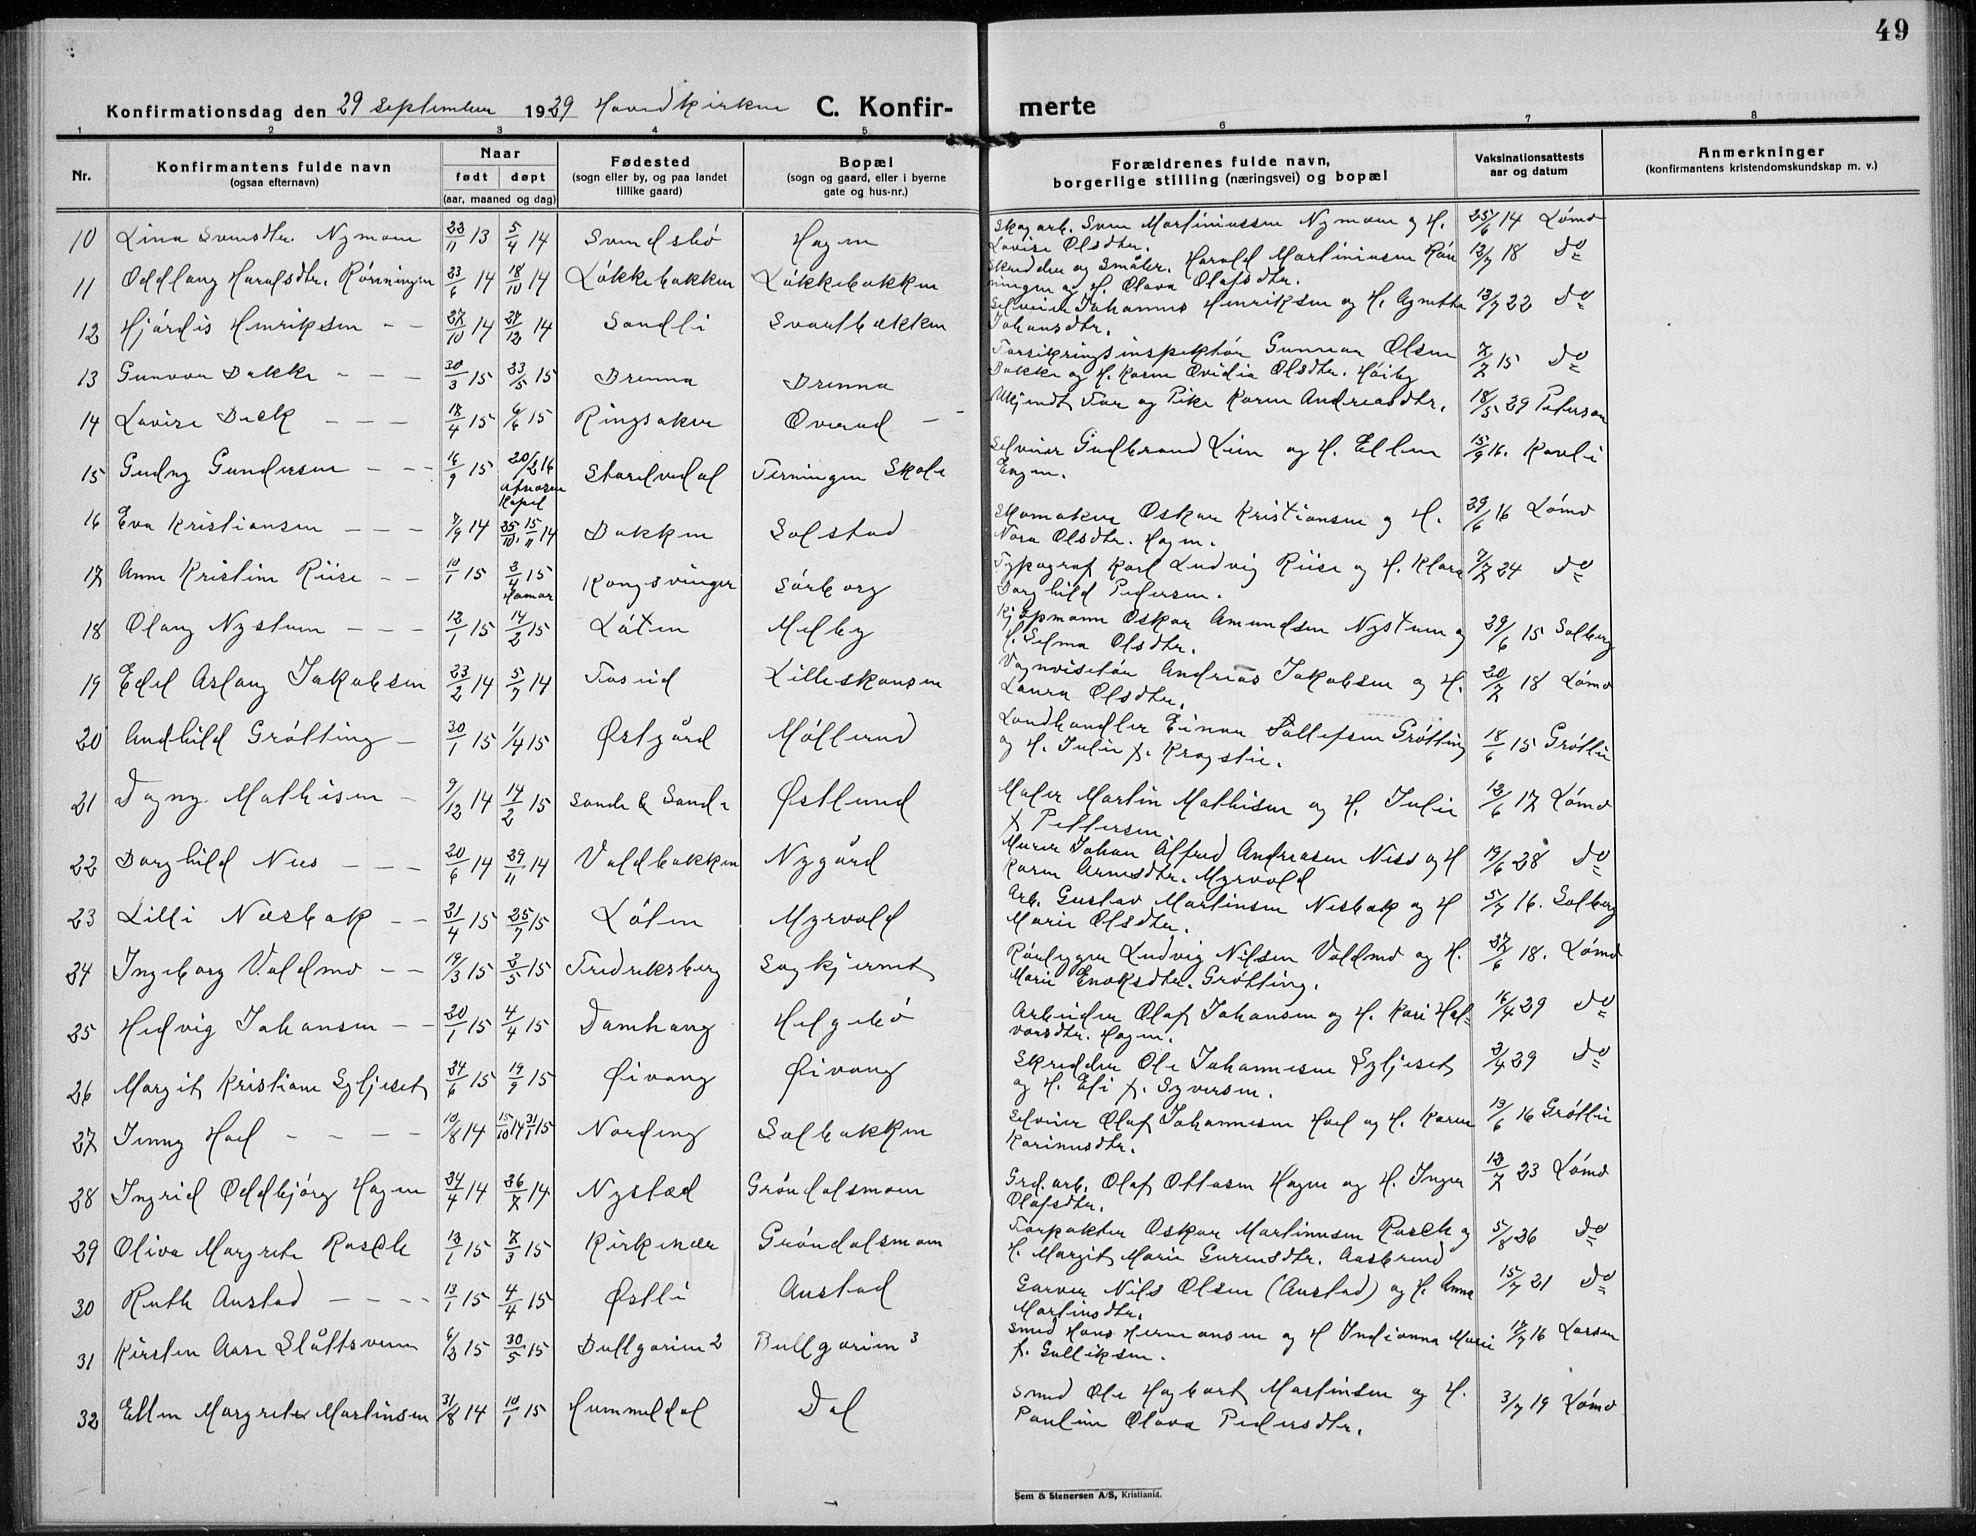 49
Konfirmationsdag den 29 september 1929 Hovedkirken C. Konfir- merte
1 2 3 4 5 6 7 8
Nr. Konfirmantens fulde navn (ogsaa efternavn) Naar født døpt (aar, maaned og dag) Fødested (sogn eller by, og paa landet tillike gaard) Bopæl (sogn og gaard, eller i byerne gate og hus-nr.) Forældrenes fulde navn, borgerlige stilling (næringsvei) og bopæl Vaksinationsattests aar og datum Anmerkninger (konfirmantens kristendomskundskap m. v.)
10 Lina Svensdtr. Nymoen 23/11 13 5/4 14 Svendsbö Hagen Skogarb. Sven Martiniussen Nymoen og H. Lovise Olsdtr. 25/6 14 Lömo
11 Oddlaug Haraldsdtr. Rönningen 23/6 14 18/10 14 Lökkebakken Lökkebakken Skredder og småbr. Harald Martiniusen Rönningen og H. Olava Olafsdtr. 12/7 18 do
12 Hjördis Henriksen - - 27/10 14 27/12 14 Sandli Svartbækken Selveier Johannes Henriksen og H. Agnethe Johansdtr. 13/7 22 do
13 Gunvor Bakke - - - 30/3 15 23/5 15 Brenna Brenna Forsikringsinspektör Gunnar Olsen Bakke og H. Karen Ovidia Olsdtr. Höiby 7/7 15 do
14 Lovise Beck - - - 18/4 15 6/6 15 Ringsaker Överud - Ukjendt Far og Pike Karen Andreasdtr. 18/5 29 Peterson
15 Gudny Gundersen - - - 16/9 15 20/2 16 Atnosen Kapel Storelvedal Terningen Skole Selveier Gudbrand Lien og H. Ellen Engen. 15/9 16. Kavli
16 Eva Kristiansen - - - 7/9 14 25/10, 15/11 14 Bakken Solstad Skomaker Oskar Kristiansen og H. Nora Olsdtr. Hagen. 29/6 16 Lömo
17 Anne Kristine Riise - - 10/1 15 3/4 15 Hamar Kongsvinger Sörborg Typograf Karl Ludvig Riise og H. Klara Borghild Pedersen. 7/7 24 do
18 Olaug Nystuen - - - 12/1 15 14/2 15 Löten Melby Kjöpmann Oskar Amundsen Nystuen og H. Selma Olsdtr. 29/6 15 Solberg
19 Edel Aslaug Jakobsen 23/2 14 5/7 14 Fosud Lilleskansen Vognvisitör Andreas Jakobsen og H. Laura Olsdtr. 20/7 18 Lömo
20 Andhild Grötting - 30/1 15 1/4 15 Østgård Möllerud Landhandler Einar Tollefsen Grötting og H. Julie f. Krogstie. 18/6 15 Gröttli
21 Dagny Mathisen - 9/12 14 14/2 15 Sonde & Sande Østlund Maler Martin Mathisen og H. Julie f. Pettersen 12/6 17 Lömo
22 Borghild Nees - - - 20/6 14 29/11 14 Voldbakken Nygård Murer Johan Alfred Andreasen Ness og H Karen Arnesdtr. Myrvold 19/6 28 do
23 Lilli Næsbak - - 21/4 15 25/7 15 Löten Myrvold Arb. Gustav Martinsen Nesbak og H Marie Olsdtr. 5/7 16. Solberg
24 Ingeborg Voldmo - - 19/3 15 2/5 15 Fredriksberg Sagkjernet Rörlegger Ludvig Nilsen Voldmo og H. Marie Enoksdtr. Grötting. 27/6 18. Lömo
25 Hedvig Johansen - - 20/1 15 4/4 15 Damhaug Helgebö Arbeider Olaf Johansen og H. Kari Halvorsdtr. Hagen. 16/4 29 do
26 Margit Kristiane Syljeset 24/6 15 19/9 15 Øivang Øivang Skredder Ole Johannesen Syljeset og H. Efi f. Syversen. 3/4 29 do
27 Jenny Hoel - - - - 10/8 14 15/10 14 31/1 15 Nordeng Solbakken Selveier Olaf Johannesen Hoel og H. Karen Karinusdtr. 13/6 16 Gröttli
28 Ingrid Oddbjörg Hagen 24/4 14 26/7 14 Nystad Gröndalsmoen Grd.arb. Olaf Ottosen Hagen og H. Inger Olafsdtr. 12/7 23 Lömo
29 Oliva Margrete Rasch 13/1 15 7/3 15 Kirkenær Gröndalsmoen Forpakter Oskar Martinusen Rasch og H. Margit Marie Gurensdtr. Aasbrund 5/8 26 do
30 Ruth Austad - - - - 13/1 15 4/4 15 Østli Austad Garver Nils Olsen (Austad) og H. Anne Martinsdtr. 15/7 21 do
31 Kirsten Aase Slåttsveen 6/3 15 30/5 15 Bullgarien 2 Bullgarien 3 Smed Hans Hermansen og H Indianna Marie f. Gulliksen. 17/7 16 Larsen
32 Ellen Margrete Martinsen 31/8 14 10/1 15 Hummeldal Dal Smed Ole Hagbart Martinsen og H. Pauline Olava Pedersdtr. 3/7 19 Lömo
Sem & Stenersen A/S, Kristiania.